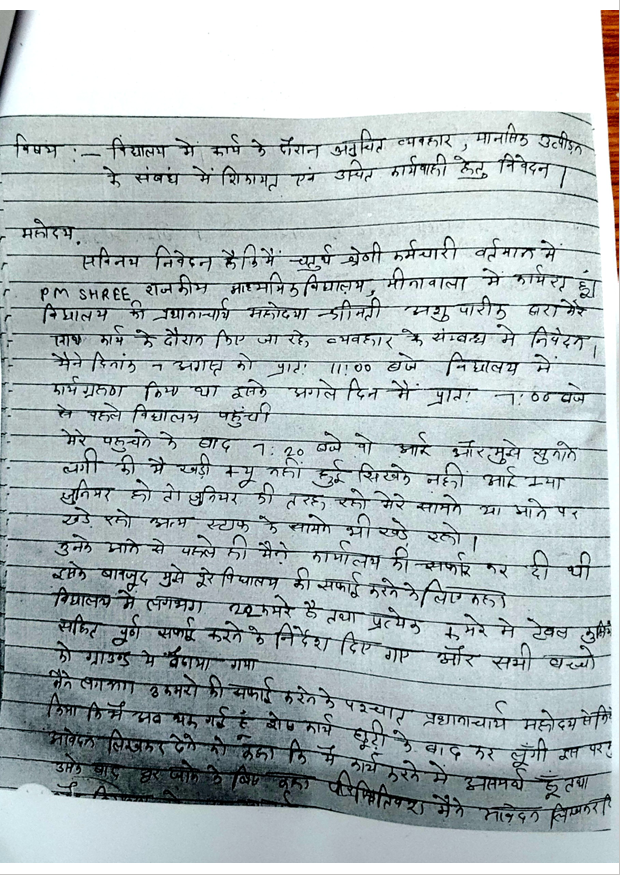 विषय :- विद्यालय में कार्य के दौरान अनुचित व्यवहार, मानसिक उत्पीड़न
के संबंध में शिकायत एवं उचित कार्यवाही हेतु निवेदन।
महोदय,
सविनय निवेदन है कि मैं चतुर्थ श्रेणी कर्मचारी वर्तमान में
PM SHREE राजकीय माध्यमिक विद्यालय, मीनावाला में कार्यरत हूं।
विद्यालय की प्रधानाचार्य महोदया श्रीमती पारीक द्वारा मेरे
कार्य के दौरान किए जा रहे व्यवहार के संबन्ध में निवेदन।
मैंने दिनांक 7 अगस्त को प्रातः 11:00 बजे विद्यालय में
कार्यग्रहण किया था इसके अगले दिन मैं प्रातः 7:00 बजे
से पहले विद्यालय पहुंची
मेरे पहुचने के बाद 7:20 बजे वो आई और मुझे सुनाने
लगी की मै खड़ी क्यू नहीं हुई सिखने नहीं आई क्या
जुनियर हो तो जुनियर की तरह रहो मेरे सामने या आने पर
खडे रहो अन्य स्टाफ के सामने भी खडे रहो।
उनके आने से पहले ही मैंने कार्यालय की सफाई कर दी थी
इसके बावजूद मुझे पूरे विद्यालय की सफाई करने के लिए कहा
विद्यालय में लगभग कमरे है तथा प्रत्येक कमरे मे टेबल
सहित पूर्ण सफाई करने के निर्देश दिए गए और सभी बच्चो
को ग्राउन्ड मे बैठाया गया
मैंने लगभग कमरो की सफाई करने के पश्चात प्रधानाचार्य महोदय से
किया कि मैं अब थक गई हूं शेष कार्य छूट्टी के बाद कर लूँगी इस पर
आवेदन लिखकर देने को कहा कि मैं कार्य करने में असमर्थ हूँ तथा
उसके बाद घर जाने के लिए कहा परिस्थितिवश मैंने आवेदन लिखकर